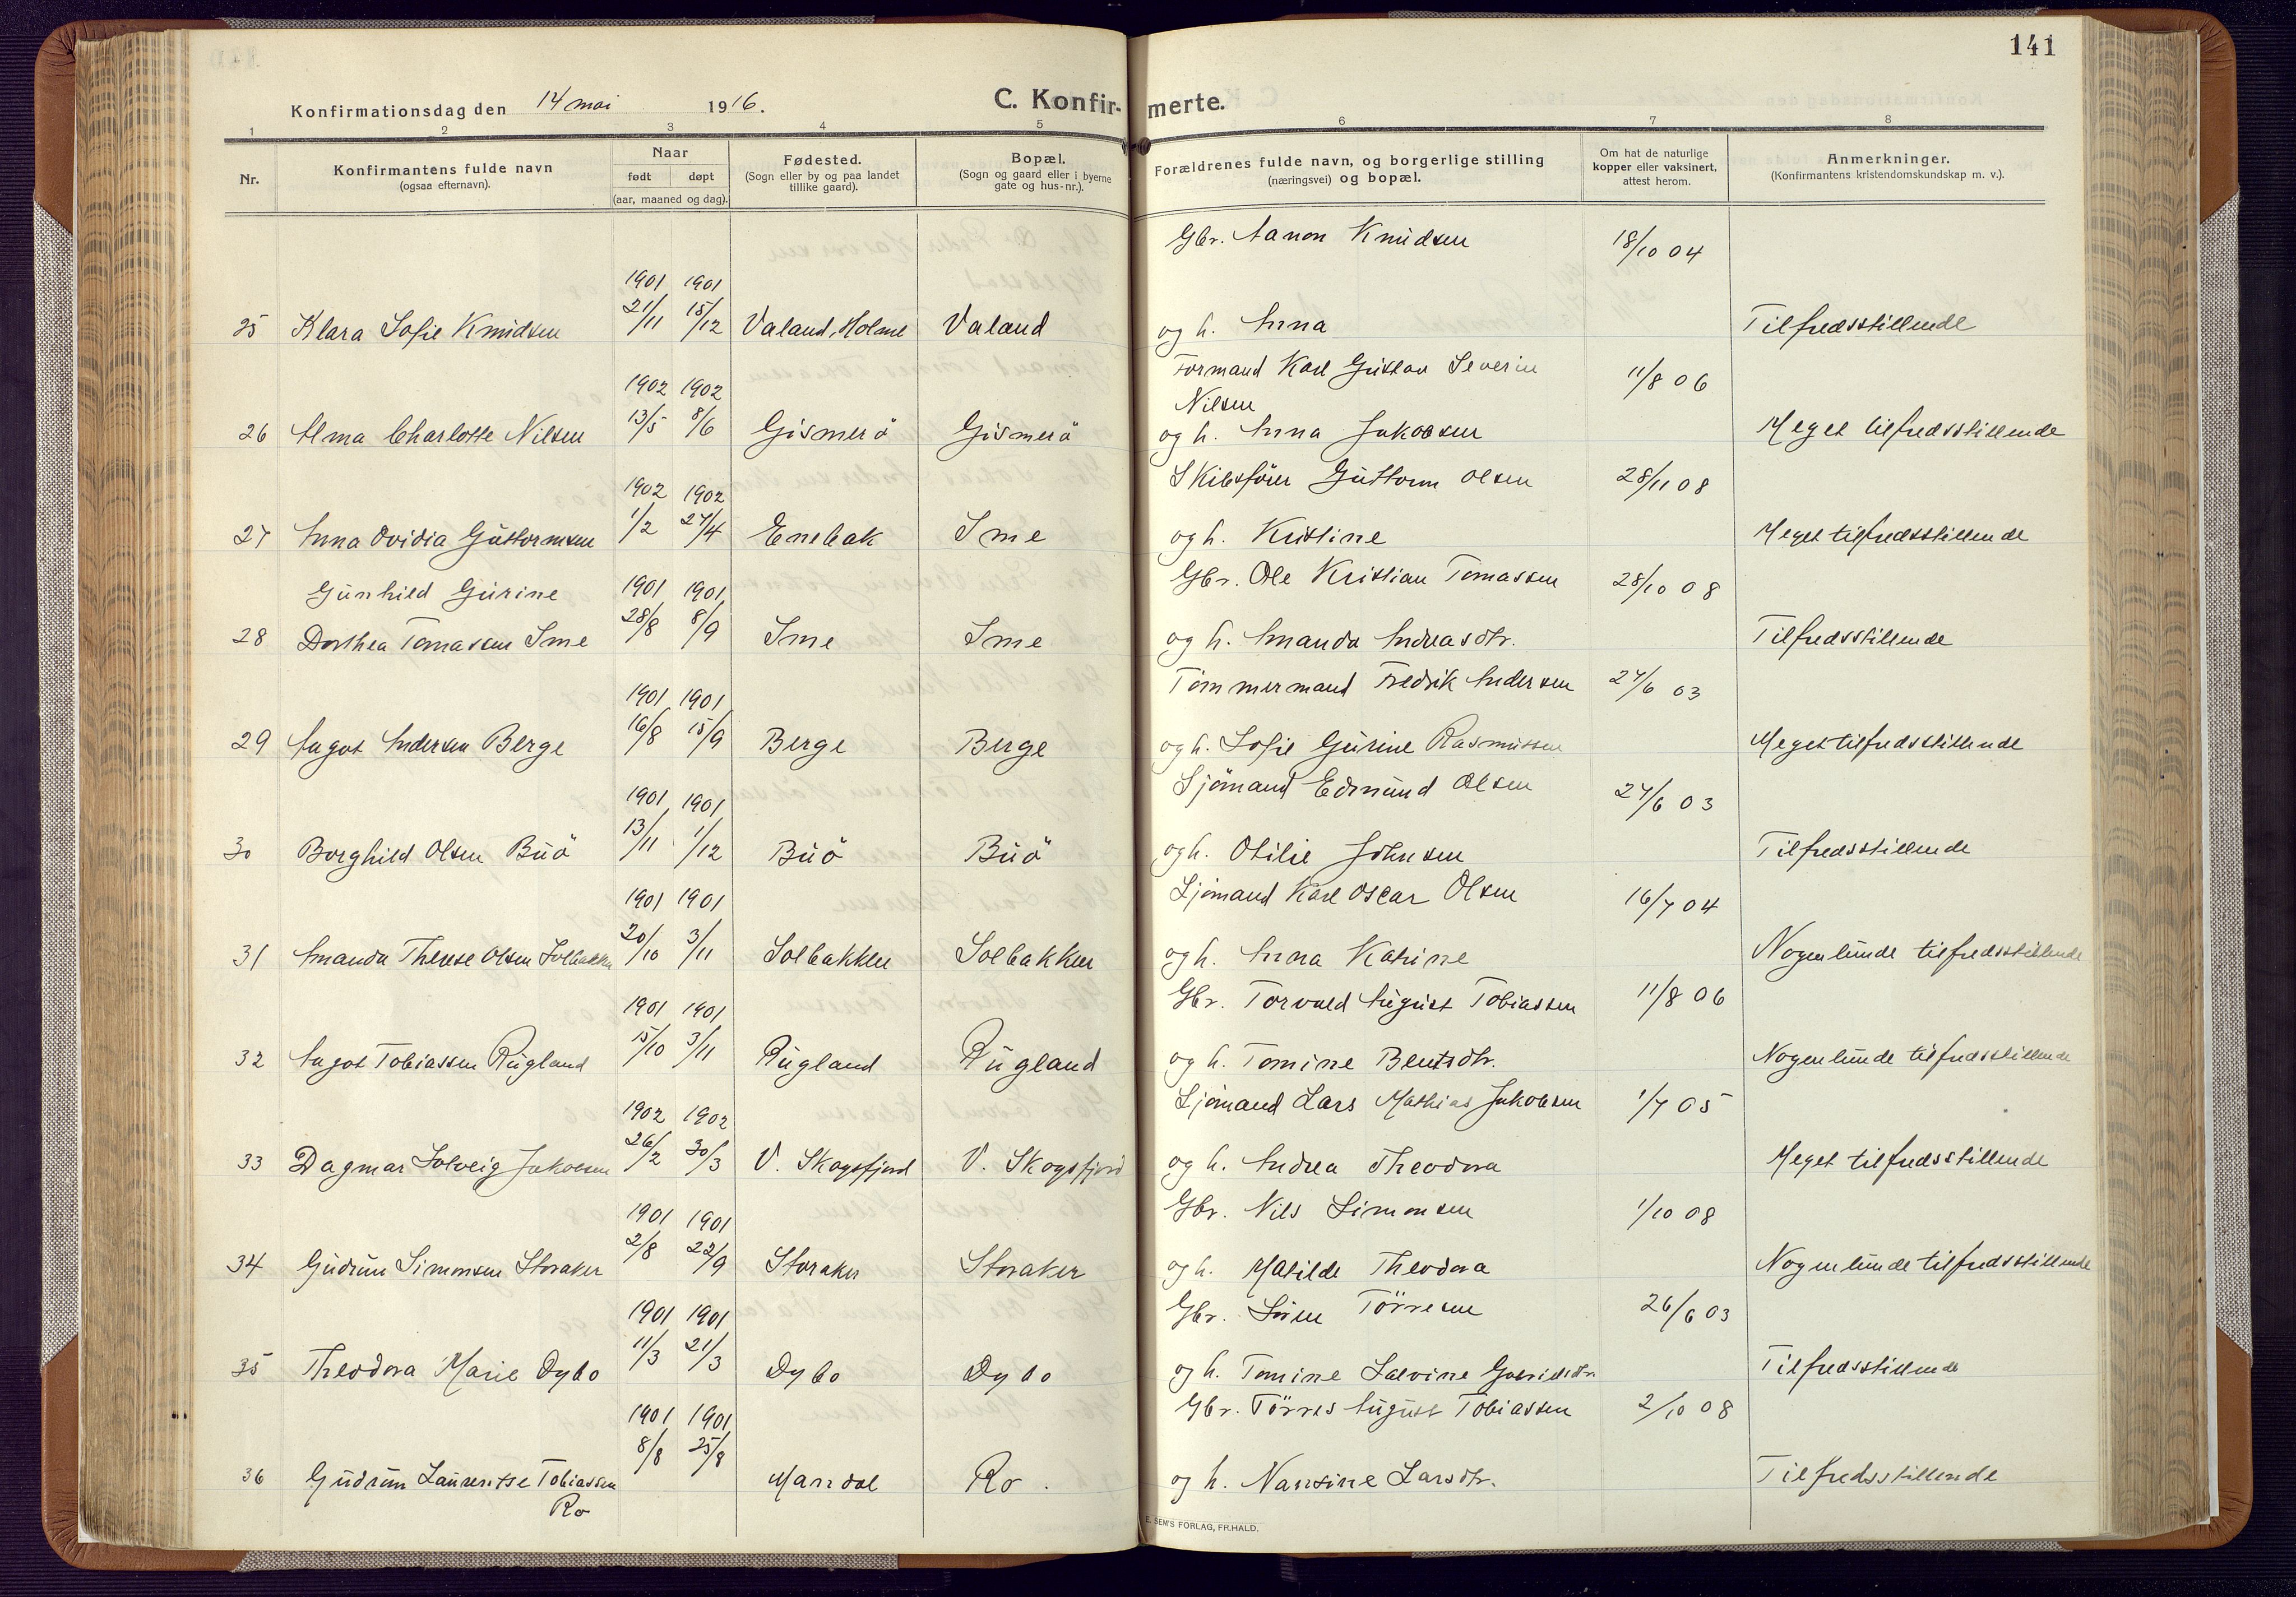 141
Konfirmationsdag den 14 mai 1916. C. Konfirmerte.
1 2 3 4 5 6 7 8
Nr. Konfirmantens fulde navn (ogsaa efternavn). Naar født døpt (aar, maaned og dag). Fødested. (Sogn eller by og paa landet tillike gaard). Bopæl. (Sogn og gaard eller i byerne gate og hus-nr.). Forældrenes fulde navn, og borgerlige stilling (næringsvei) og bopæl. Om hat de naturlige kopper eller vaksinert, attest herom. Anmerkninger. (Konfirmantens kristendomskundskap m. v.).
Gbr. Aanon Knudsen 18/10 04
1901 1901
21/11 15/12
25 Klara Sofie Knudsen Valand, Holme Valand og h. Anna Tilfredsstillende
Formand Karl Gustav Severin 11/8 06
1902 1902 Nilsen
13/5 8/6
26 Alma Charlotte Nilsen Gismerö Gismerö og h. Anna Jakobsen Meget tilfredsstillende
Skibsförer Guttorm Olsen 28/11 08
1902 1902
1/2 27/4
27 Anna Ovidia Guttormsen Enebak Ime og h. Kristine Meget tilfredsstillende
Gunhild Gurine 1901 1901 Gbr. Ole Kristian Tomassen 28/10 08
28/8 8/9
28 Dorthea Tomassen Ime Ime Ime og h. Amanda Andreasdtr. Tilfredsstillende
1901 1901 Tömmermand Fredrik Andersen 27/6 03
16/8 15/9
29 Aagot Andersen Berge Berge Berge og h. Sofie Gurine Rasmussen Meget tilfredsstillende
1901 1901 Sjömand Edmund Olsen 27/6 03
13/11 1/12
30 Borghild Olsen Buö Buö Buö og h. Otilie Johnsen Tilfredsstillende
1901 1901 Sjömand Karl Oscar Olsen 16/7 04
20/10 3/11
31 Amanda Therese Olsen Solbakken Solbakken Solbakken og h. Anna Katrine Nogenlunde tilfredsstillende
1901 1901 Gbr. Torvald August Tobiassen 11/8 06
15/10 3/11
32 Aagot Tobiassen Rugland Rugland Rugland og h. Tomine Bentsdtr. Nogenlunde tilfredsstillende
1902 1902 Sjömand Lars Mathias Jakobsen 1/7 05
26/2 30/3
33 Dagmar Solveig Jakobsen V. Skogsfjord V. Skogsfjord og h. Andrea Theodora Meget tilfredsstillende
1901 1901 Gbr. Nils Simonsen 1/10 08
2/8 22/9
34 Gudrun Simonsen Storaker Storaker Storaker og h. Matilde Theodora Nogenlunde tilfredsstillende
1901 1901 Gbr. Sören Törresen 26/6 03
11/3 21/3
35 Theodora Marie Dybo Dybo Dybo og h. Tomine Salvine Gabrielsdtr. Tilfredsstillende
1901 1901 Gbr. Törres August Tobiassen 2/10 08
8/8 25/8
36 Gudrun Laurentse Tobiassen Mandal Ro og h. Nansine Larsdtr. Tilfredsstillende
Ro
E. SEM'S FORLAG, FR.HALD.